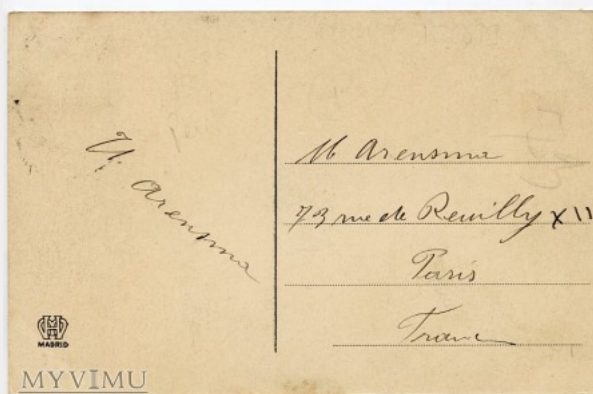 U. Arensma
M Arensma
73 rue de Reuilly XII
Paris
France
MADRID
MYVIMU